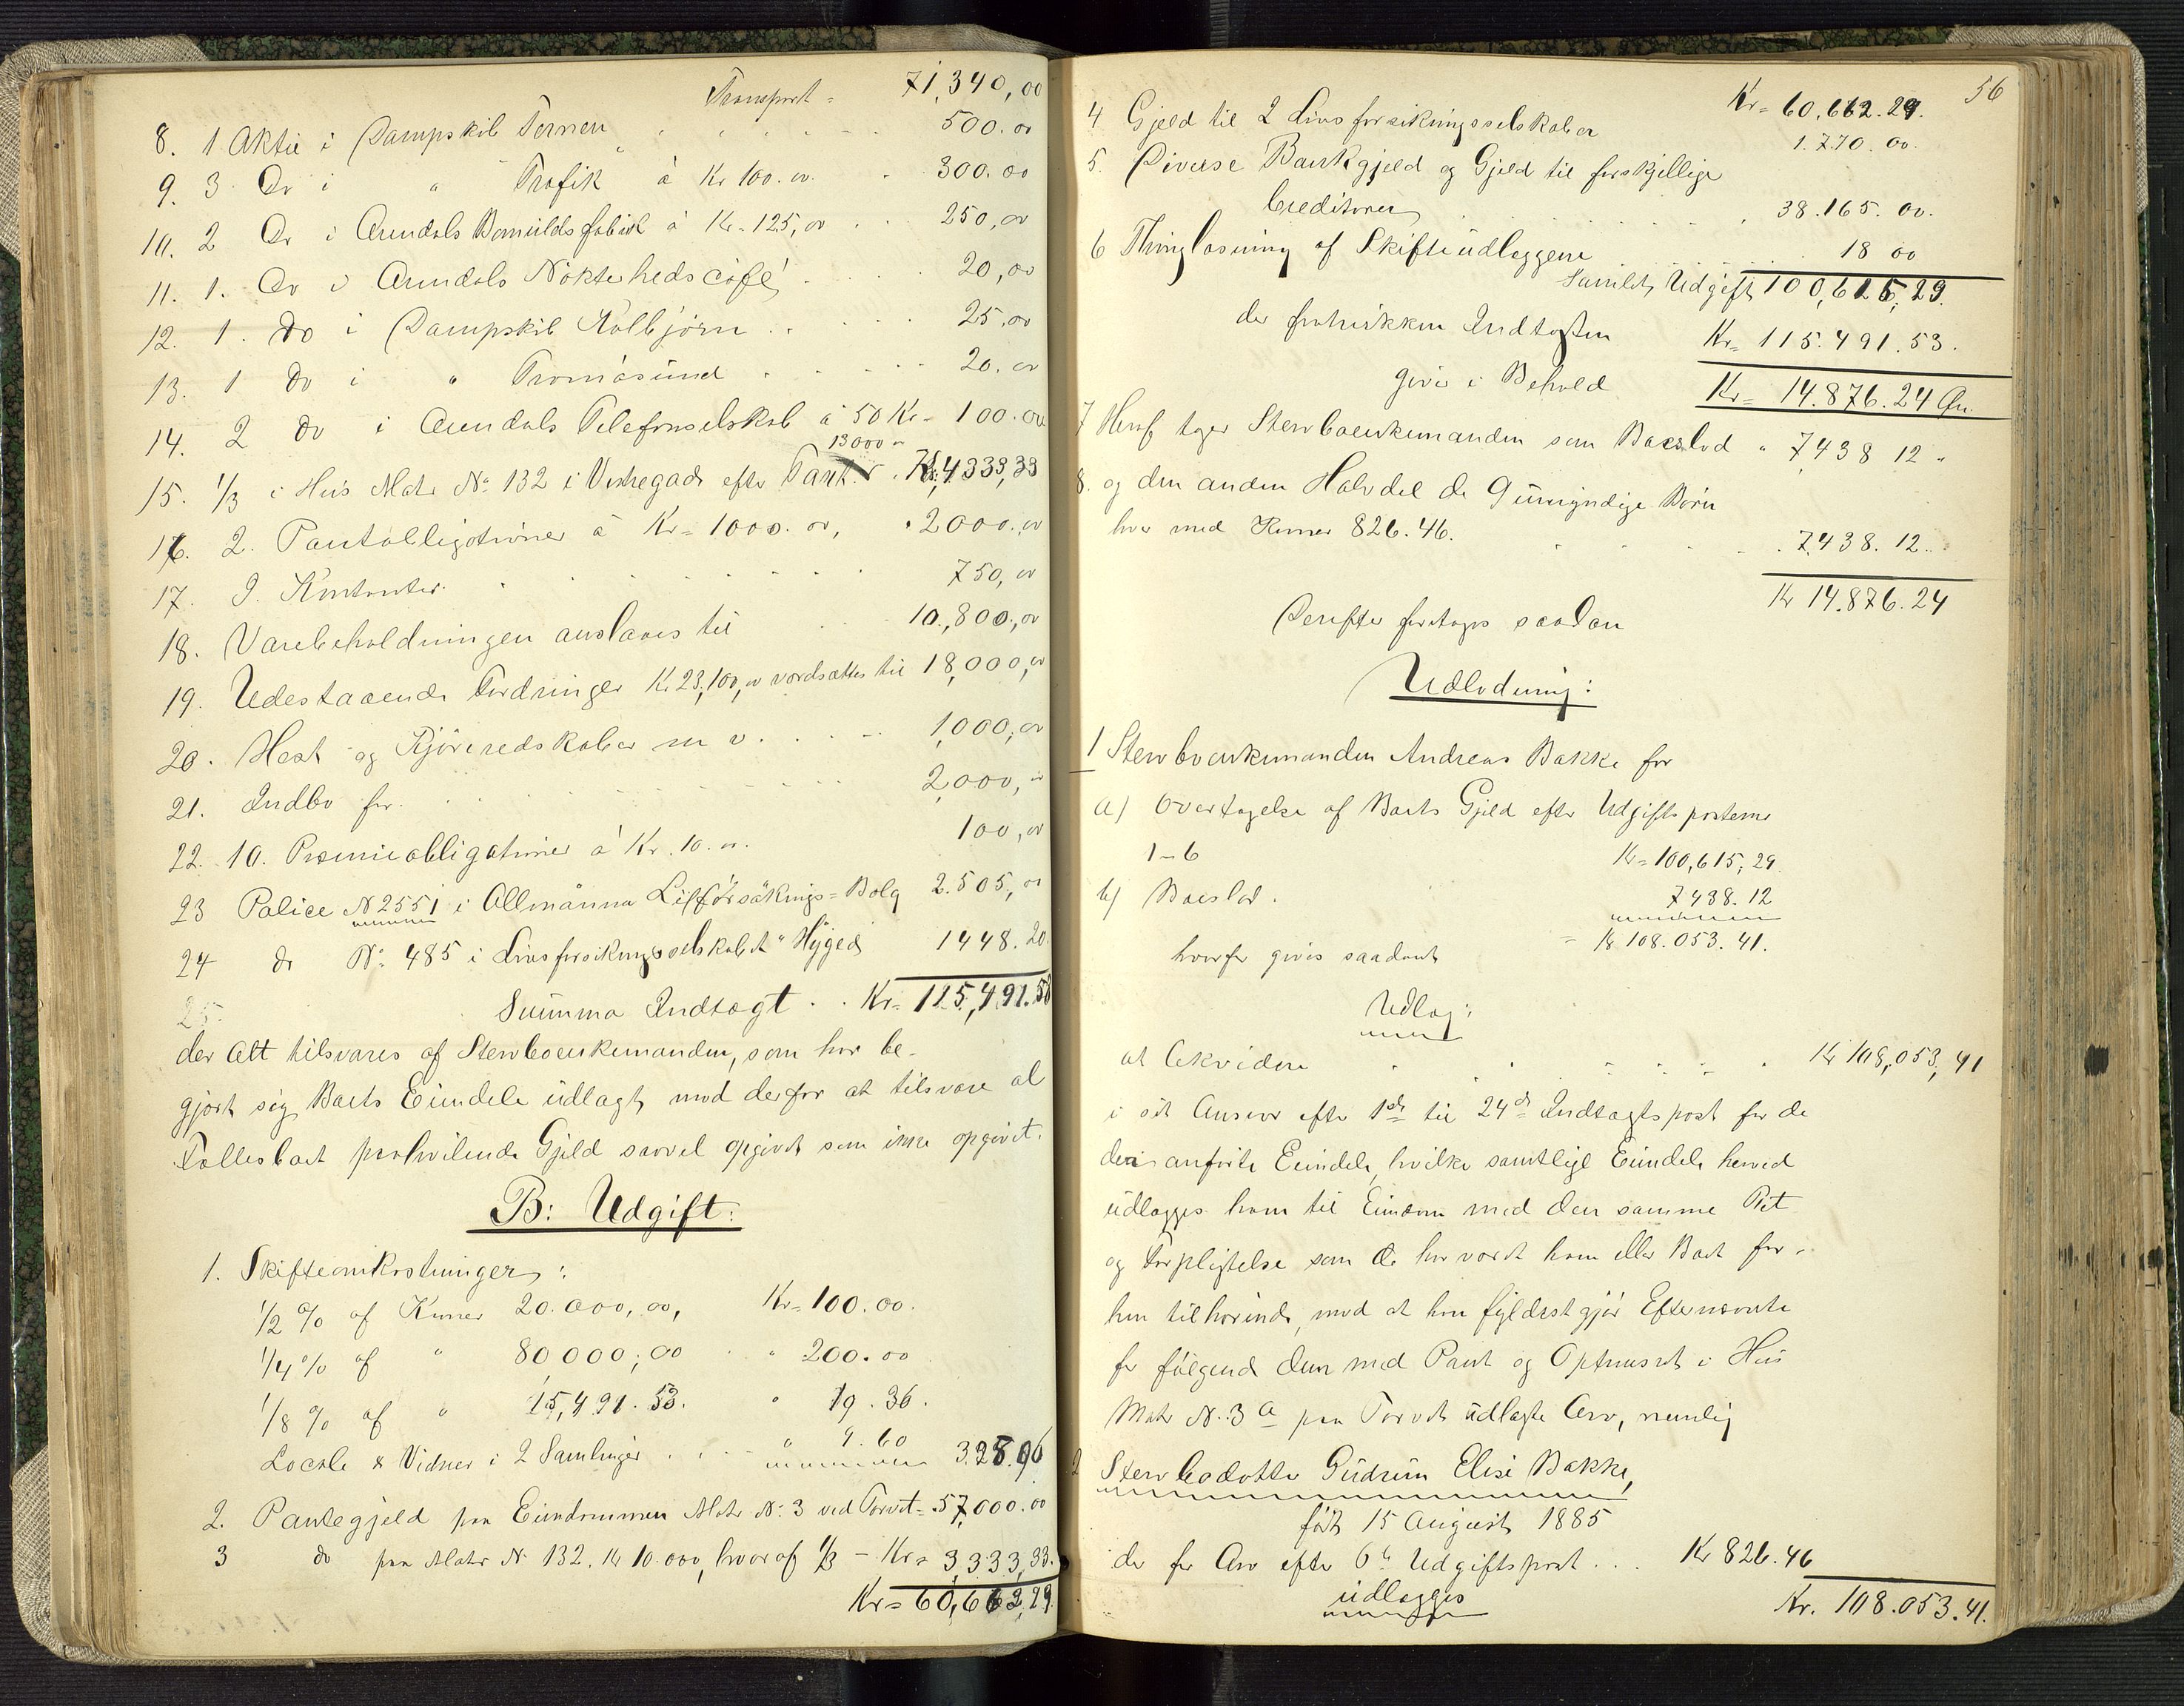 Transport = 71,340,00
8. 1 Aktie i Dampskib Ternen " 500.00
9. 3 Do i " Trafik à Kr 100.00. 300.00
10. 2 Do i Arendals Bomuldsfabrik à Kr. 125,00 250,00
11. 1. Do i Arendals Nökterhedscafé 20,00
12. 1. Do i Dampskib Kolbjörn 25,00
13. 1 Do i " Tromösund 20.00
14. 2 do i Arendals Telefonselskab à 50 Kr = 100.00
13000 00
15. 1/3 i Hus Matr No. 132 i Vestregade efter Taxt. Kr. 4333,33
16. 2. Pantobligationer à Kr = 1000.00, 2000.00
17. I. Kontanter 750,00
18. Varebeholdningen anslaaes til 10,800,00
19. Udestaaende Fordringer Kr 23,100,00 værdsættes til 18,000,00
20. Hest og Kjöreredskaber m v. 1,000,00
21. Indbo for. 2,000,00
22. 10. Præmieobligationer à Kr. 10.00. 100,00
23 Police N 2551 i Allmänna Lifförsäkrings=Bolg 2.505,00
24 do No. 485 i Livsforsikringsselskabet "Hygea 1448.20.
25. Summa Indtægt . . Kr = 115,491.53
der Alt tilsvares af Stervboenkemanden, som har be-
gjært sig Boets Eiendele udlagt mod derfor at tilsvare al
Fællesboet paahvilende Gjeld saavel opgivet som ikke opgivet.
B: Udgift:
1. Skifteomkostninger:
1/2 % af Kroner 20.000,00, Kr = 100.00.
1/4 % af " 80 000,00 " 200.00
1/8 % af " 15,491.53. " 19.36.
Locale & Vidner i 2 Samlinger " 9.60 328.96
2. Pantegjeld paa Eiendommen Matr No. 3 ved Torvet = 57,000.00
3 do paa Matr N. 132. Kr 10.000, hvoraf 1/3 - Kr = 3,333,33.
Kr = 60,662,29
56
Kr = 60,662.29.
4 Gjeld til 2 Livsforsikringsselskaber 1.770.00.
5. Diverse Bankgjeld og Gjeld til forskjellige
Creditorer 38.165.00.
6 Thinglæsning af Skifteudlæggene 18 00
Samlet Udgift 100,615,29.
der fratrukken Indtægten Kr = 115.491.53.
giver i Behold Kr = 14.876.24 Øre
7 Heraf tager Stervboenkemanden som Boeslod " 7,438 12 "
8. og den anden Halvdel de 9 umyndige Børn
hver med Kroner 826.46. 7,438.12
Kr 14.876.24
Derefter foretages saadan
Udlodning:
1 Stervboenkemanden Andreas Bakke for
a) Overtagelse af Boets Gjeld efter Udgiftsposterne
1-6 Kr = 100,615,29.
b) Boeslod. 7438.12
= Kr 108.053.41.
hvorfor gives saadant
Udlæg:
at likvidere Kr 108,053,41
i sit Ansvar efter 1ste til 24de Indtægtspost for de
deri anførte Eiendele, hvilke samtlige Eiendele herved
udlægges ham til Eiendom med den samme Ret
og Forpligtelse som de har været ham eller Boet for-
hen tilhørende, mod at han fyldestgjør Efternævnte
for følgende dem med Pant og Opfrnsret i Hus
Matr N. 3 a paa Torvet udlagte Arv, nemlig
2 Stervbodatter Gudrun Elise Bakke,
født 15 August 1885
der for Arv efter 6te Udgiftspost ... Kr 826.46
udlægges Kr. 108.053.41.